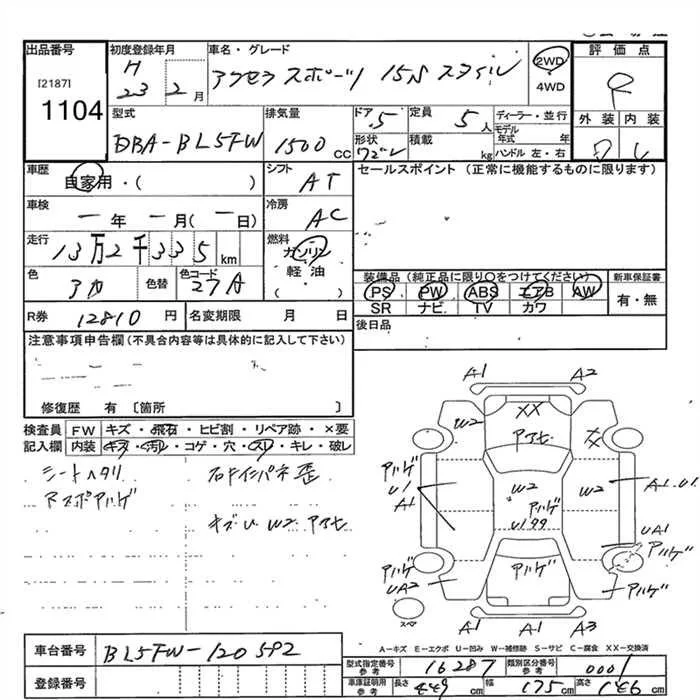 出品番号
[2187]
1104
初度登録年月
H
23 2 月
車名・グレード
アクセラ スポーツ 15S スタイル
2WD
4WD
評価点
R
外装 内装
D C
型式
DBA-BL5FW
排気量
1500 cc
ドア 5
形状 ワゴン
定員 5 人
積載 kg
ディーラー・並行
モデル年式 年
ハンドル 左・右
車歴
自家用・( )
シフト AT
セールスポイント (正常に機能するものに限ります)
車検
一 年 一 月(一 日)
冷房 AC
走行
13万2千335 km
燃料
ガソリン
軽油
( )
色 アカ
色替
色コード 27A
装備品(純正品に限り〇をつけてください)
PS PW ABS エアB AW
SR ナビ TV カワ
新車保証書
有・無
R券 12810 円
名変期限 月 日
後日品
注意事項申告欄(不具合内容等は具体的に記入して下さい)
修復歴 有〔箇所 〕
検査員記入欄
FW キズ・飛石・ヒビ割・リペア跡・×要
内装 キズ・汚れ・コゲ・穴・スレ・キレ・破レ
シートヘタリ
アスポアハゲ
右ドインパネ歪
キズU W2 アセ
A1 A2
W2 XX アセ XX
アハゲ
U1
A1
W2
アハゲ
U1 99
W2
A1.U1
UA1
アハゲ
アハゲ
UA2
アハゲ
アハゲ
スペ
A1 A1 A3
A-キズ E-エクボ U-凹み W-補修跡 S-サビ C-腐食 XX-交換済
車台番号 BL5FW-120592
登録番号
型式指定番号 参考 16287
類別区分番号 参考 0001
車庫証明用 参考 長さ 449 cm 幅 175 cm 高さ 146 cm